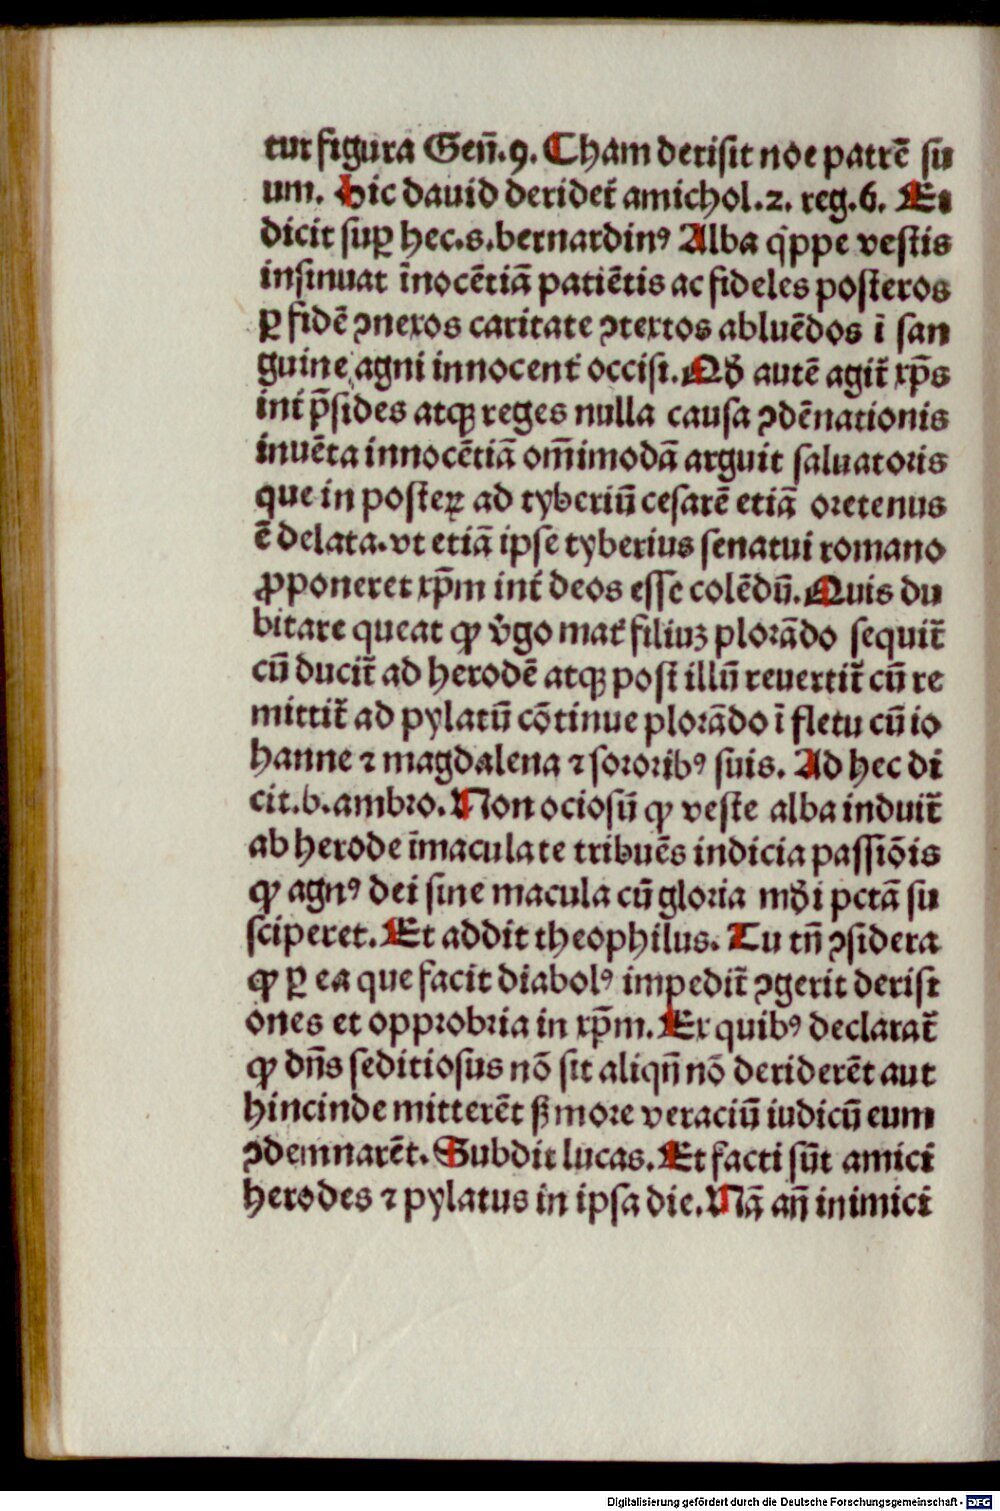 tur figura Geñ.9. Cham derisit noe patrē su
um. Hic dauid deridet᷑ amichol.2. reg.6. Et
dicit suꝑ hec.s.bernardinꝰ Alba q̇ppe vestis
insinuat īnocētiā patiētis ac fideles posteros
ꝑ fidē ꝯnexos caritate ꝯtextos abluēdos ī san
guine agni innocent᷑ occisi. Qđ autē agit᷑ xp̄s
int᷑ p̄sides atqꝫ reges nulla causa ꝯdēnationis
inuēta innocētiā om̄imodā arguit saluatoris
que in posteꝝ ad tyberiū cesarē etiā oretenus
ē delata. vt etiā ipse tyberius senatui romano
ꝓponeret xp̄m int᷑ deos esse colēdū. Quis du
bitare queat ꝙ v̇go mat᷑ filiuꝫ plorādo sequit᷑
cū ducit᷑ ad herodē atqꝫ post illū reuertit᷑ cū re
mittit᷑ ad pylatū cōtinue plorādo ī fletu cū io
hanne ⁊ magdalena ⁊ sororibꝰ suis. Ad hec di
cit.b.ambro. Non ociosū ꝙ veste alba induit᷑
ab herode īmaculate tribuēs indicia passiōis
ꝙ agnꝰ dei sine macula cū gloria mđi pctā su
sciperet. Et addit theophilus. Tu tñ ꝯsidera
ꝙ ꝑ ea que facit diabolꝰ impedit᷑ ꝯgerit derisi
ones et opprobria in xp̄m. Ex quibꝰ declarat᷑
ꝙ dñs seditiosus nō sit aliqñ nō deriderēt aut
hincinde mitterēt ß more veraciū iudicū eum
ꝯdemnarēt. Subdit lucas. Et facti sūt amici
herodes ⁊ pylatus in ipsa die. Nā añ inimici
Digitalisierung gefördert durch die Deutsche Forschungsgemeinschaft - DFG